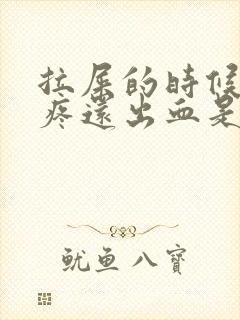 拉屎的時候
疼還出血是
魷魚八寶